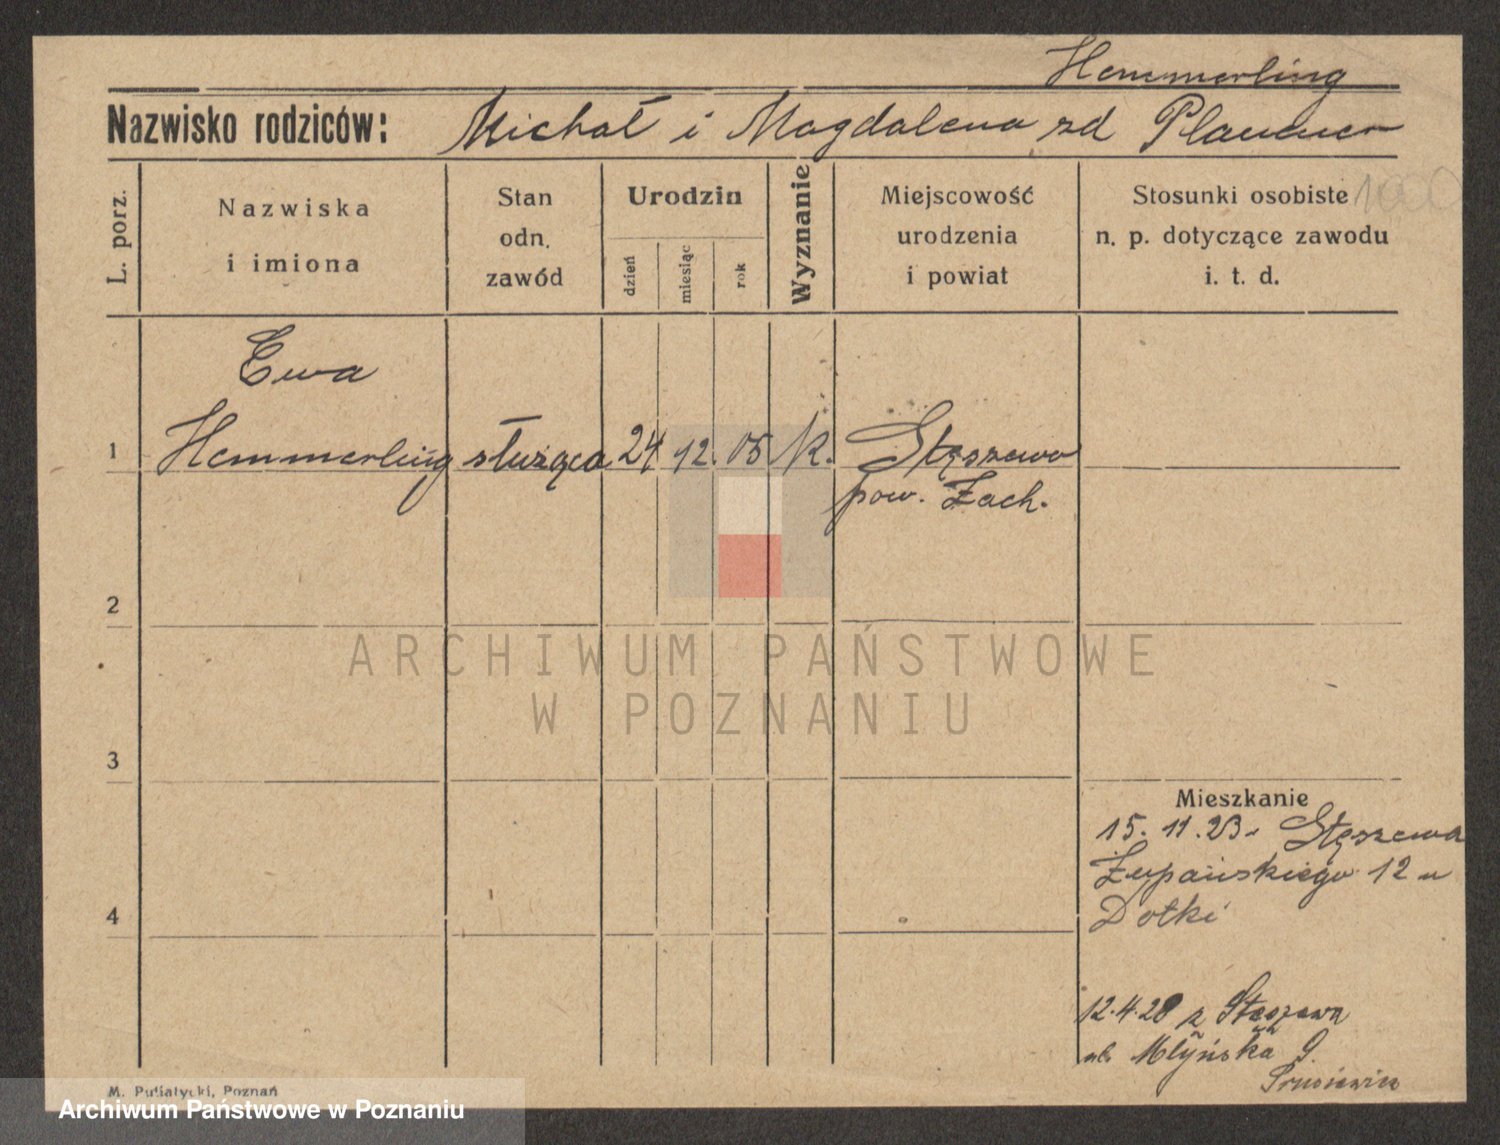 Hemmerling
Nazwisko rodziców: Michał i Magdalena zd
L. porz.
Nazwiska
i imiona
Stan
odn.
zawód
Urodzin
dzień
miesiąc
rok
Wyznanie
Miejscowość
urodzenia
i powiat
Stosunki osobiste
n. p. dotyczące zawodu
i. t. d.
Ewa
1 Hemmerling służąca 24 12. 05 k. Stęszewo
pow. Zach.
2
ARCHIWUM PAŃSTWOWE
W POZNANIU
3
Mieszkanie
15. 11. 23. Stęszewa
Żupańskiego 12 u
Dotki
4
12.4.28 z Stęszewa
ul. Młyńska 9.
M. Putiatycki, Poznań
Archiwum Państwowe w Poznaniu